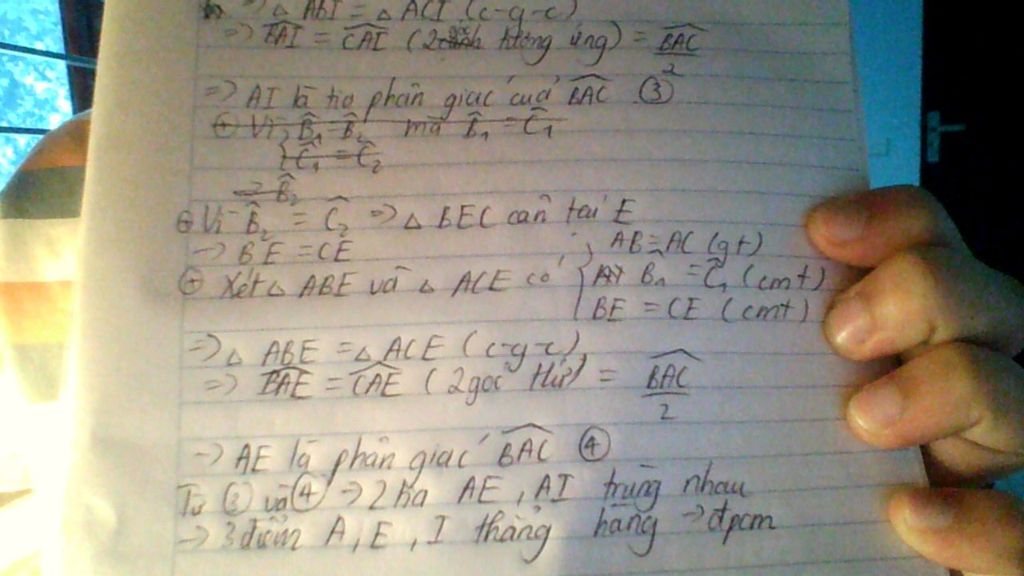 => △ ABI = △ ACI (c-g-c)
=> BAI = CAI (2 tương ứng) = BAC/2
=> AI là tia phân giác của BAC ③
⊕ Vì B̂₁ = B̂₂ mà B̂₁ = Ĉ₁
{Ĉ₁ = Ĉ₂
=> B̂₂
⊕ Vì B̂₂ = Ĉ₂ => △ BEC cân tại E
-> BE = CE
⊕ Xét △ ABE và △ ACE có { AB = AC (gt)
B̂₁ = Ĉ₁ (cmt)
BE = CE (cmt)
=> △ ABE = △ ACE (c-g-c)
=> BAE = CAE (2 góc tứ) = BAC/2
-> AE là phân giác BAC ④
Từ ③ và ④ -> 2 tia AE, AI trùng nhau
-> 3 điểm A, E, I thẳng hàng -> đpcm